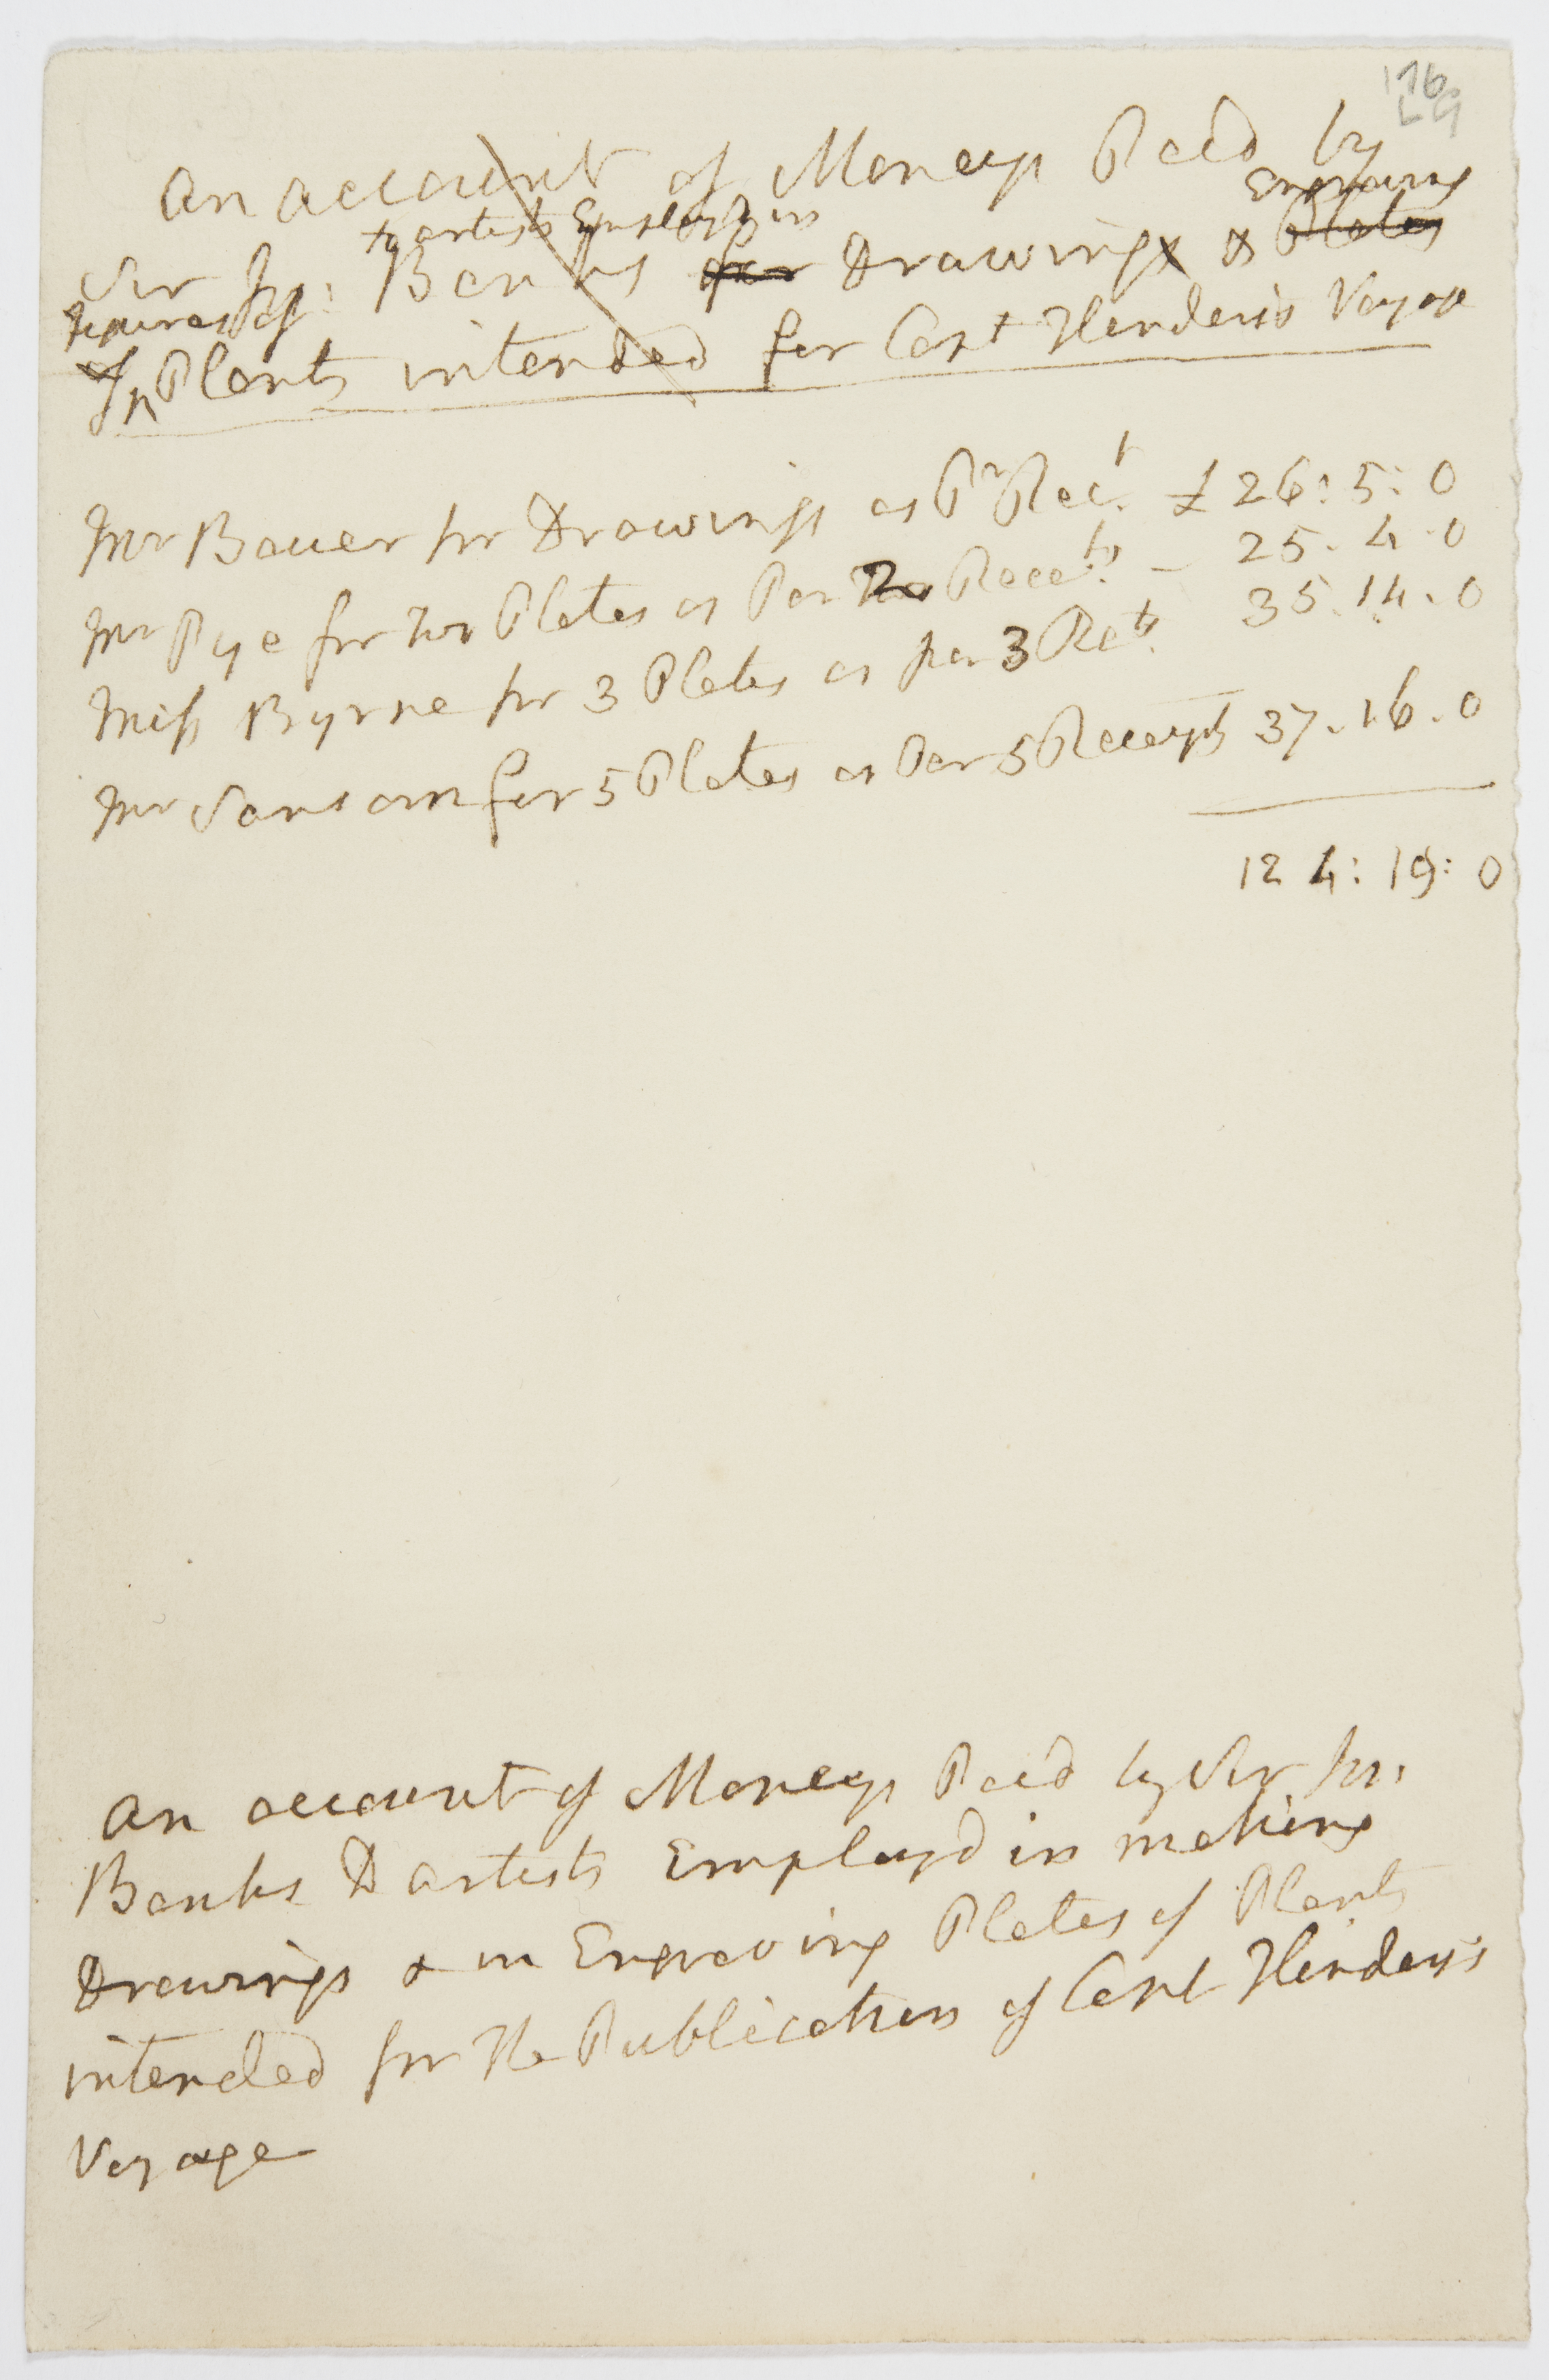 176.
L G
An account of Moneys Paid by
to artists Employd in Engraving
Sir Jos: Banks for Drawings & Plates
figures of
of Plants intended for Capt Flinders's Voyage
Mr Bauer for Drawings as Pr Rect. £ 26: 5: 0
Mr Pye for two Plates as Per 2 Recets. - 25. 4. 0
Miss Byrne for 3 Plates as per 3 Rets. 35. 14. 0
Mr Sansom for 5 Plates as Per 5 Receipts 37. 16. 0
124: 19: 0
An account of Moneys Paid by Sir Jos:
Banks to artists Employd in making
Drawings & in Engraving Plates of Plants
intended for the Publication of Capt Flinders's
Voyage